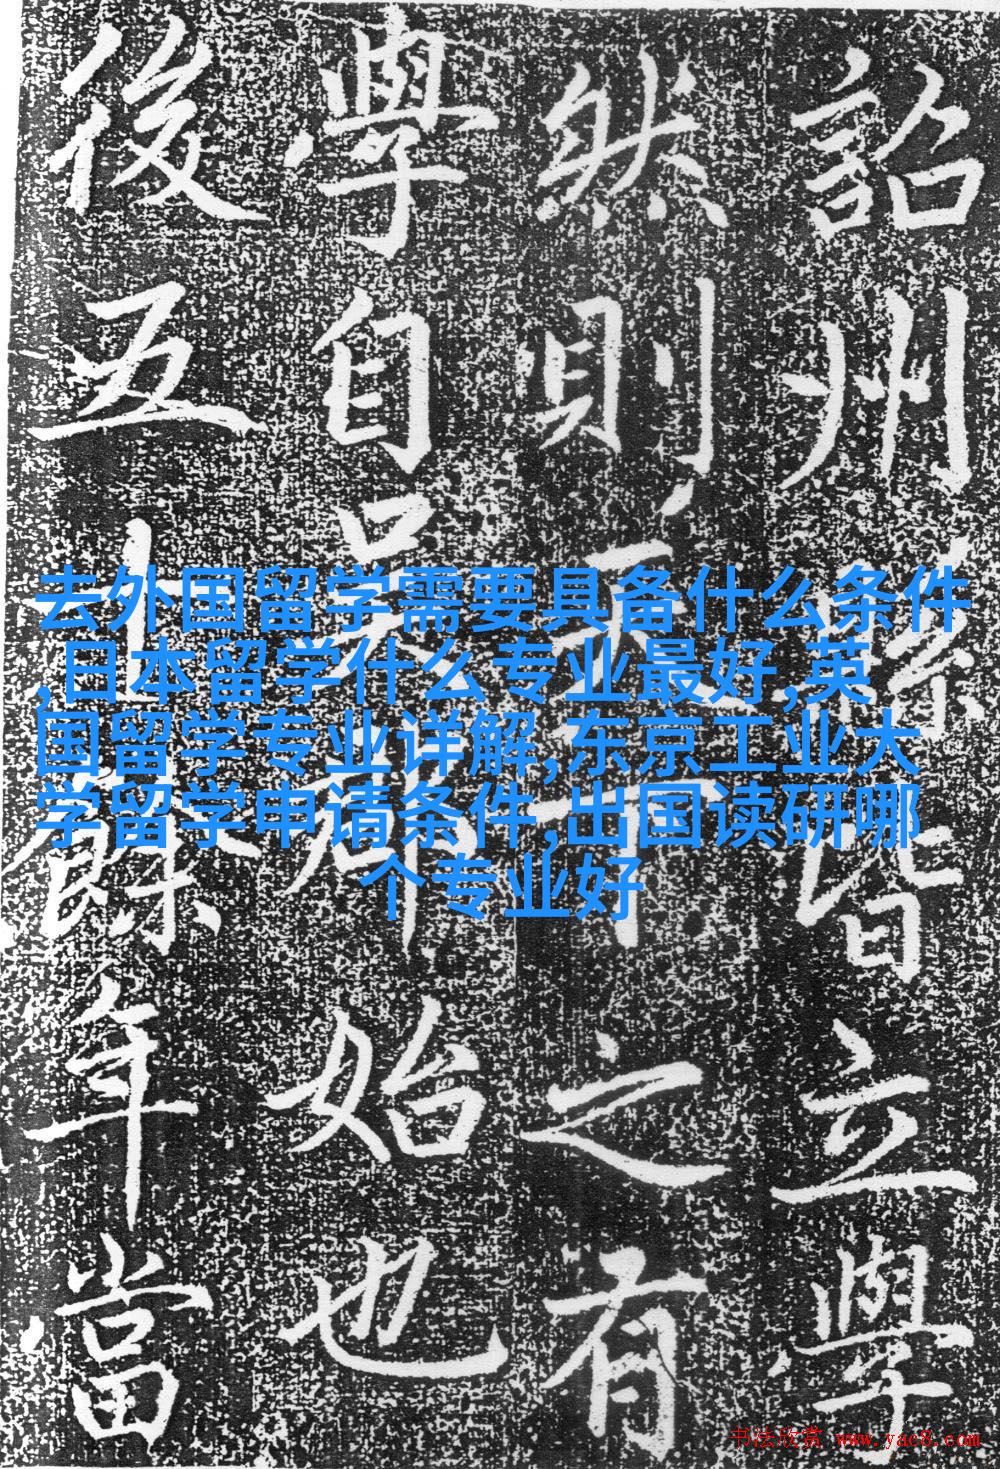 詔州縣皆立學
然則天下之有
學自吳郡始也
後五十餘年當
去外国留学需要具备什么条件
,日本留学什么专业最好,英
国留学专业详解,东京工业大
学留学申请条件,出国读研哪
个专业好
书法欣赏 www.yac8.com